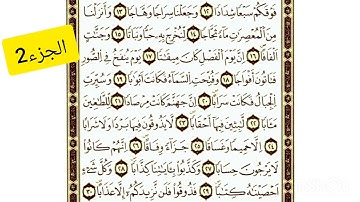 فَوْقَكُمْ سَبْعًا شِدَادًا ١٢ وَجَعَلْنَا سِرَاجًا وَهَّاجًا ١٣ وَأَنزَلْنَا
مِنَ الْمُعْصِرَاتِ مَاءً ثَجَّاجًا ١٤ لِّنُخْرِجَ بِهِ حَبًّا وَنَبَاتًا ١٥ وَجَنَّاتٍ
أَلْفَافًا ١٦ إِنَّ يَوْمَ الْفَصْلِ كَانَ مِيقَاتًا ١٧ يَوْمَ يُنفَخُ فِي الصُّورِ
فَتَأْتُونَ أَفْوَاجًا ١٨ وَفُتِحَتِ السَّمَاءُ فَكَانَتْ أَبْوَابًا ١٩ وَسُيِّرَتِ
الْجِبَالُ فَكَانَتْ سَرَابًا ٢٠ إِنَّ جَهَنَّمَ كَانَتْ مِرْصَادًا ٢١ لِّلطَّاغِينَ
مَآبًا ٢٢ لَّابِثِينَ فِيهَا أَحْقَابًا ٢٣ لَّا يَذُوقُونَ فِيهَا بَرْدًا وَلَا شَرَابًا
٢٤ إِلَّا حَمِيمًا وَغَسَّاقًا ٢٥ جَزَاءً وِفَاقًا ٢٦ إِنَّهُمْ كَانُوا
لَا يَرْجُونَ حِسَابًا ٢٧ وَكَذَّبُوا بِآيَاتِنَا كِذَّابًا ٢٨ وَكُلَّ شَيْءٍ
أَحْصَيْنَاهُ كِتَابًا ٢٩ فَذُوقُوا فَلَن نَّزِيدَكُمْ إِلَّا عَذَابًا ٣٠
الجزء2